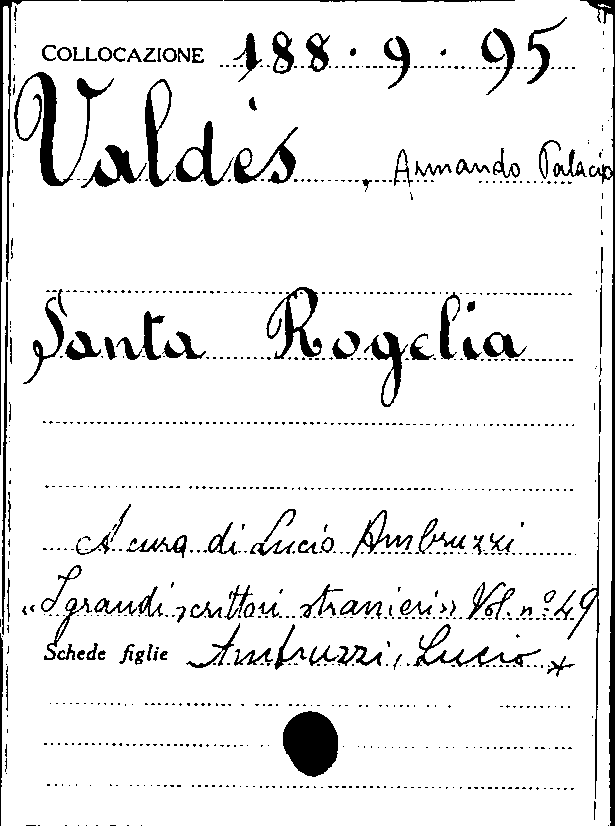 COLLOCAZIONE 188.9.95
Valdès, Armando Palacio
Santa Rogelia
A cura di Lucio Ambruzzi
"I grandi scrittori stranieri" Vol. n° 49
Schede figlie Ambruzzi, Lucio *